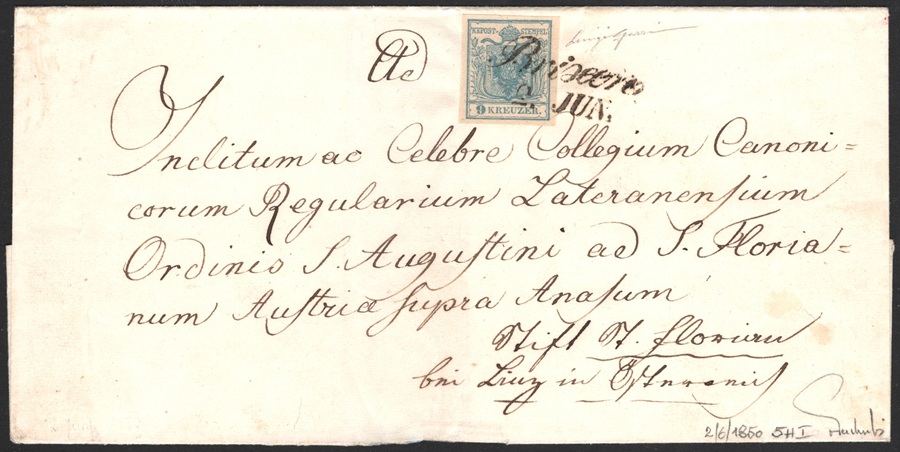 KK POST-STEMPEL
9 KREUZER.
Brixen
2. JUN.
Ad
Inclitum ac Celebre Collegium Canoni=
corum Regularium Lateranensium
Ordinis S. Augustini ad S. Floria=
num Austriæ supra Anasum
Stift St. Florian
bei Linz in Österreich
2/6/1850 5H I